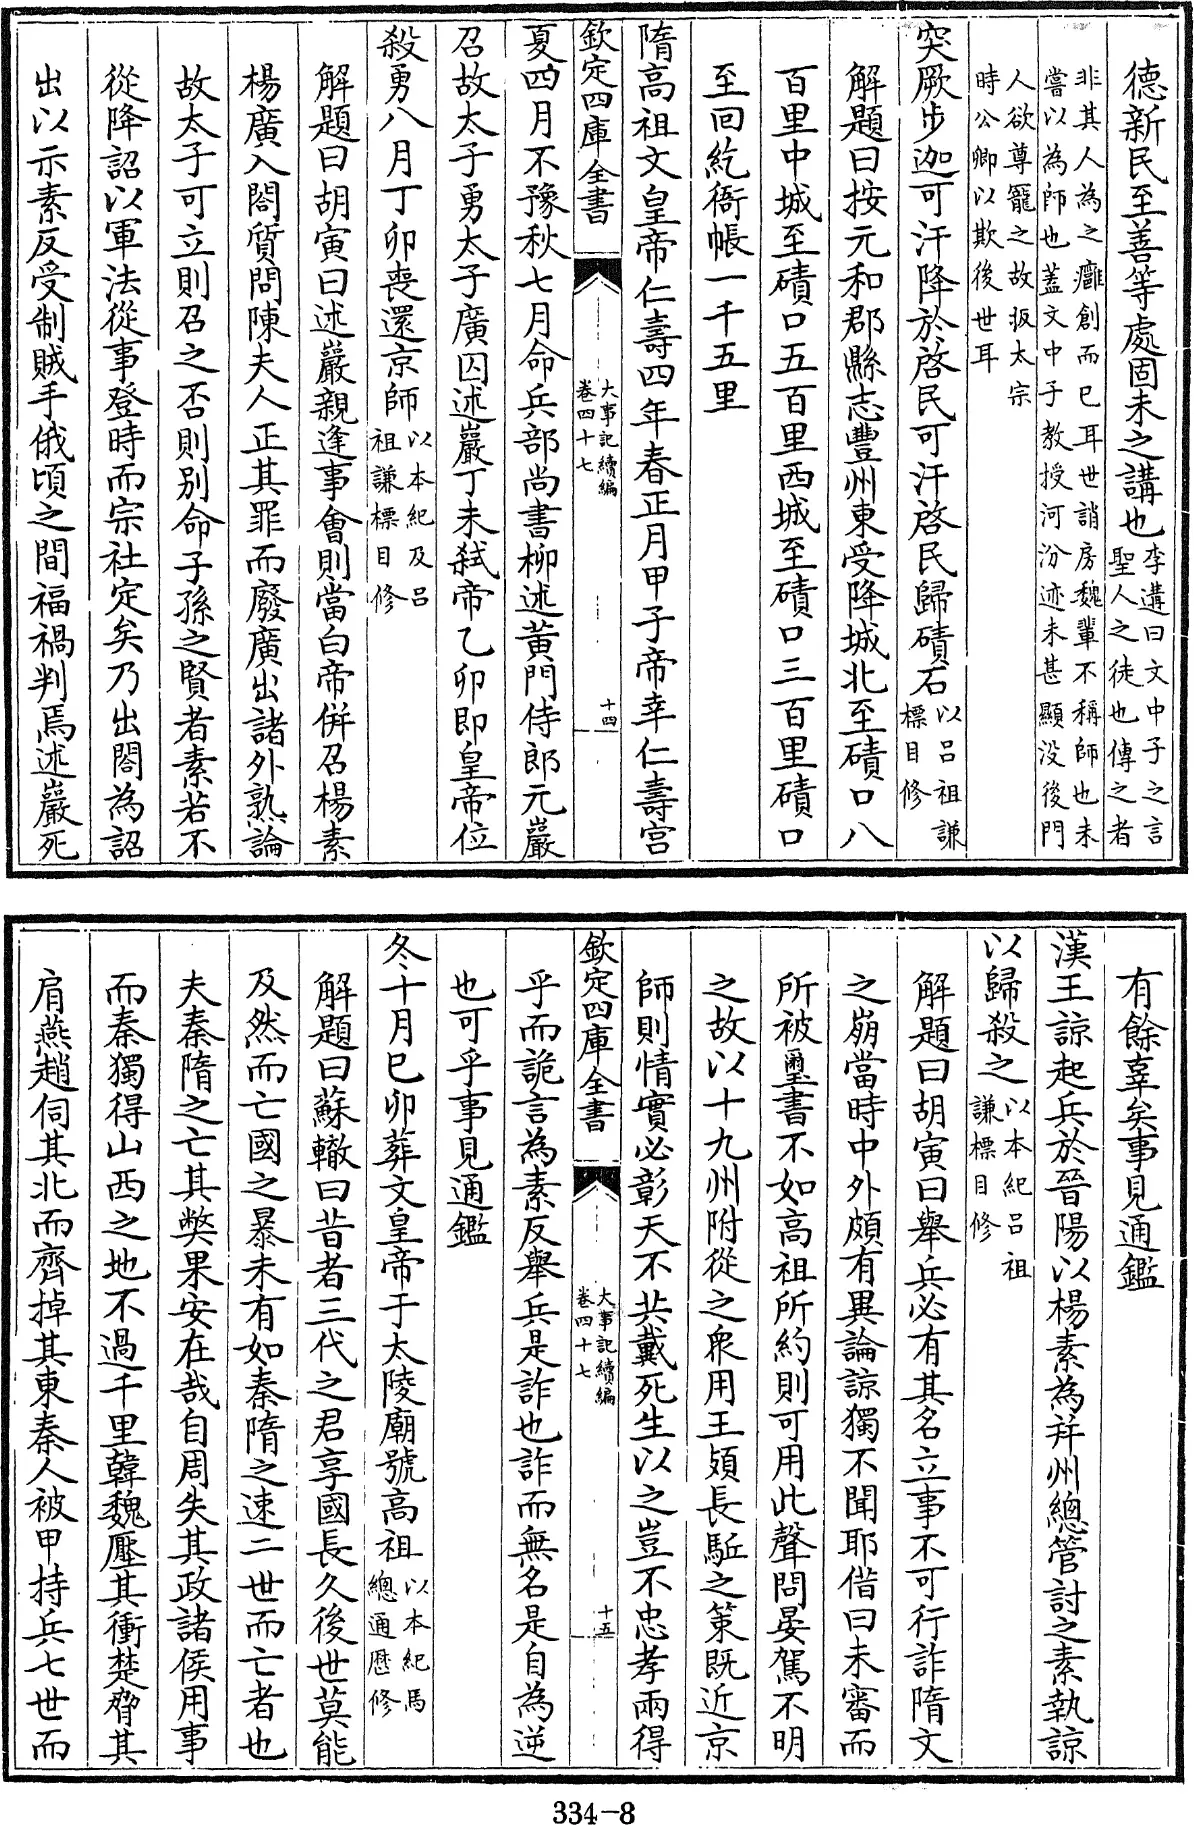 德新民至善等處固未之講也李遘曰文中子之言聖人之徒也傳之者
非其人為之癰創而已耳世誚房魏輩不稱師也未嘗以為師也蓋文中子教授河汾迹未甚顯没後門
人欲尊寵之故扳太宗時公卿以欺後世耳
突厥步迦可汗降於啓民可汗啓民歸磧石以吕祖謙標目修
解題曰按元和郡縣志豐州東受降城北至磧口八
百里中城至磧口五百里西城至磧口三百里磧口
至回紇衙帳一千五里
隋高祖文皇帝仁壽四年春正月甲子帝幸仁壽宫
欽定四庫全書
大事記續編
卷四十七
十四
夏四月不豫秋七月命兵部尚書柳述黄門侍郎元巖
召故太子勇太子廣囚述巖丁未弑帝乙卯即皇帝位
殺勇八月丁卯喪還京師以本紀及吕祖謙標目修
解題曰胡寅曰述巖親逢事會則當白帝併召楊素
楊廣入閤質問陳夫人正其罪而廢廣出諸外孰論
故太子可立則召之否則别命子孫之賢者素若不
從降詔以軍法從事登時而宗社定矣乃出閤為詔
出以示素反受制賊手俄頃之間福禍判焉述巖死
有餘辜矣事見通鑑
漢王諒起兵於晉陽以楊素為并州總管討之素執諒
以歸殺之以本紀吕祖謙標目修
解題曰胡寅曰舉兵必有其名立事不可行詐隋文
之崩當時中外頗有異論諒獨不聞耶借曰未審而
所被璽書不如高祖所約則可用此聲問晏駕不明
之故以十九州附從之衆用王頍長驅之策既近京
師則情實必彰天不共戴死生以之豈不忠孝兩得
欽定四庫全書
大事記續編
卷四十七
十五
乎而詭言為素反舉兵是詐也詐而無名是自為逆
也可乎事見通鑑
冬十月巳卯葬文皇帝于太陵廟號高祖以本紀馬總通厯修
解題曰蘇轍曰昔者三代之君享國長久後世莫能
及然而亡國之暴未有如秦隋之速二世而亡者也
夫秦隋之亡其弊果安在哉自周失其政諸侯用事
而秦獨得山西之地不過千里韓魏壓其衝楚脅其
肩燕趙伺其北而齊掉其東秦人被甲持兵七世而
334-8